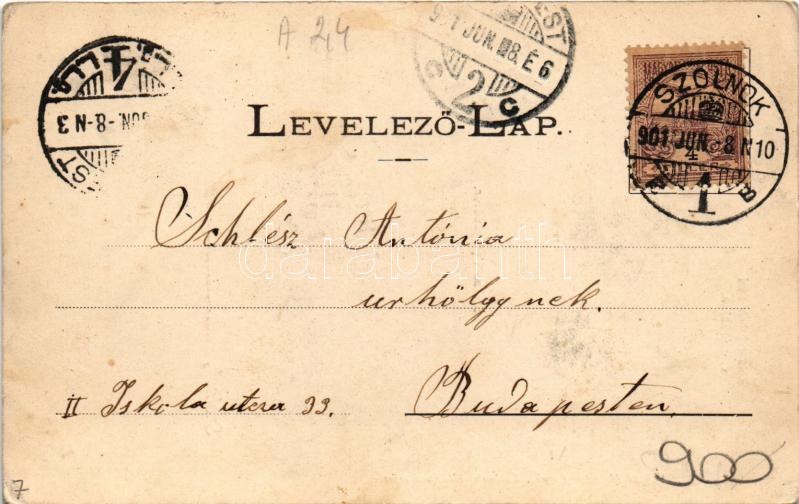 A 24
EST
901 JUN. 8. É 6
2 C
4
N. 8-N 3
ST
SZOLNOK
901 JUN. 8. N10
4
1 B
LEVELEZŐ-LAP.
Schlész Antónia
urhölgynek.
darabanth
II Iskola utcza 33. Budapesten.
900
7